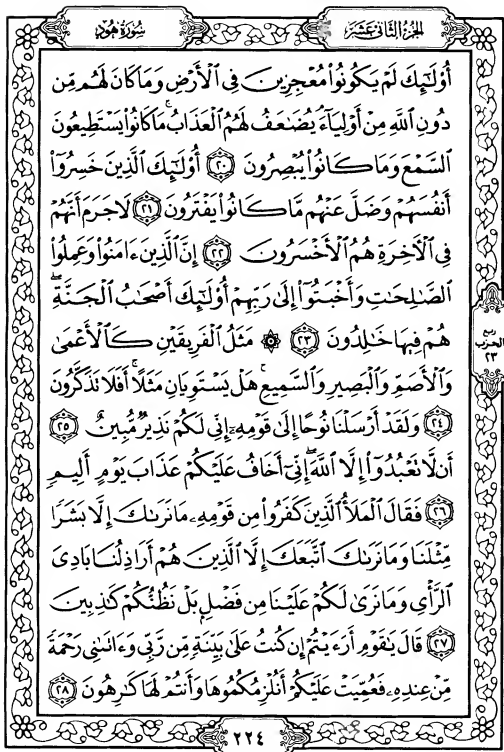 الجزء الثاني عشر
سورة هود
أُوْلَٰٓئِكَ لَمْ يَكُونُوا۟ مُعْجِزِينَ فِي ٱلْأَرْضِ وَمَا كَانَ لَهُم مِّن
دُونِ ٱللَّهِ مِنْ أَوْلِيَآءَ ۘ يُضَٰعَفُ لَهُمُ ٱلْعَذَابُ ۚ مَا كَانُوا۟ يَسْتَطِيعُونَ
ٱلسَّمْعَ وَمَا كَانُوا۟ يُبْصِرُونَ ﴿٢٠﴾ أُوْلَٰٓئِكَ ٱلَّذِينَ خَسِرُوٓا۟
أَنفُسَهُمْ وَضَلَّ عَنْهُم مَّا كَانُوا۟ يَفْتَرُونَ ﴿٢١﴾ لَا جَرَمَ أَنَّهُمْ
فِي ٱلْأَخِرَةِ هُمُ ٱلْأَخْسَرُونَ ﴿٢٢﴾ إِنَّ ٱلَّذِينَ ءَامَنُوا۟ وَعَمِلُوا۟
ٱلصَّٰلِحَٰتِ وَأَخْبَتُوٓا۟ إِلَىٰ رَبِّهِمْ أُوْلَٰٓئِكَ أَصْحَٰبُ ٱلْجَنَّةِ ۖ
هُمْ فِيهَا خَٰلِدُونَ ﴿٢٣﴾ ۞ مَثَلُ ٱلْفَرِيقَيْنِ كَٱلْأَعْمَىٰ
وَٱلْأَصَمِّ وَٱلْبَصِيرِ وَٱلسَّمِيعِ ۚ هَلْ يَسْتَوِيَانِ مَثَلًا ۚ أَفَلَا تَذَكَّرُونَ
﴿٢٤﴾ وَلَقَدْ أَرْسَلْنَا نُوحًا إِلَىٰ قَوْمِهِۦٓ إِنِّي لَكُمْ نَذِيرٌ مُّبِينٌ ﴿٢٥﴾
أَن لَّا تَعْبُدُوٓا۟ إِلَّا ٱللَّهَ ۖ إِنِّيٓ أَخَافُ عَلَيْكُمْ عَذَابَ يَوْمٍ أَلِيمٍ
﴿٢٦﴾ فَقَالَ ٱلْمَلَأُ ٱلَّذِينَ كَفَرُوا۟ مِن قَوْمِهِۦ مَا نَرَىٰكَ إِلَّا بَشَرًا
مِّثْلَنَا وَمَا نَرَىٰكَ ٱتَّبَعَكَ إِلَّا ٱلَّذِينَ هُمْ أَرَاذِلُنَا بَادِيَ
ٱلرَّأْيِ وَمَا نَرَىٰ لَكُمْ عَلَيْنَا مِن فَضْلٍۭ بَلْ نَظُنُّكُمْ كَٰذِبِينَ
﴿٢٧﴾ قَالَ يَٰقَوْمِ أَرَءَيْتُمْ إِن كُنتُ عَلَىٰ بَيِّنَةٍ مِّن رَّبِّي وَءَاتَىٰنِي رَحْمَةً
مِّنْ عِندِهِۦ فَعُمِّيَتْ عَلَيْكُمْ أَنُلْزِمُكُمُوهَا وَأَنتُمْ لَهَا كَٰرِهُونَ ﴿٢٨﴾
ربع
الحزب
٢٣
٢٢٤